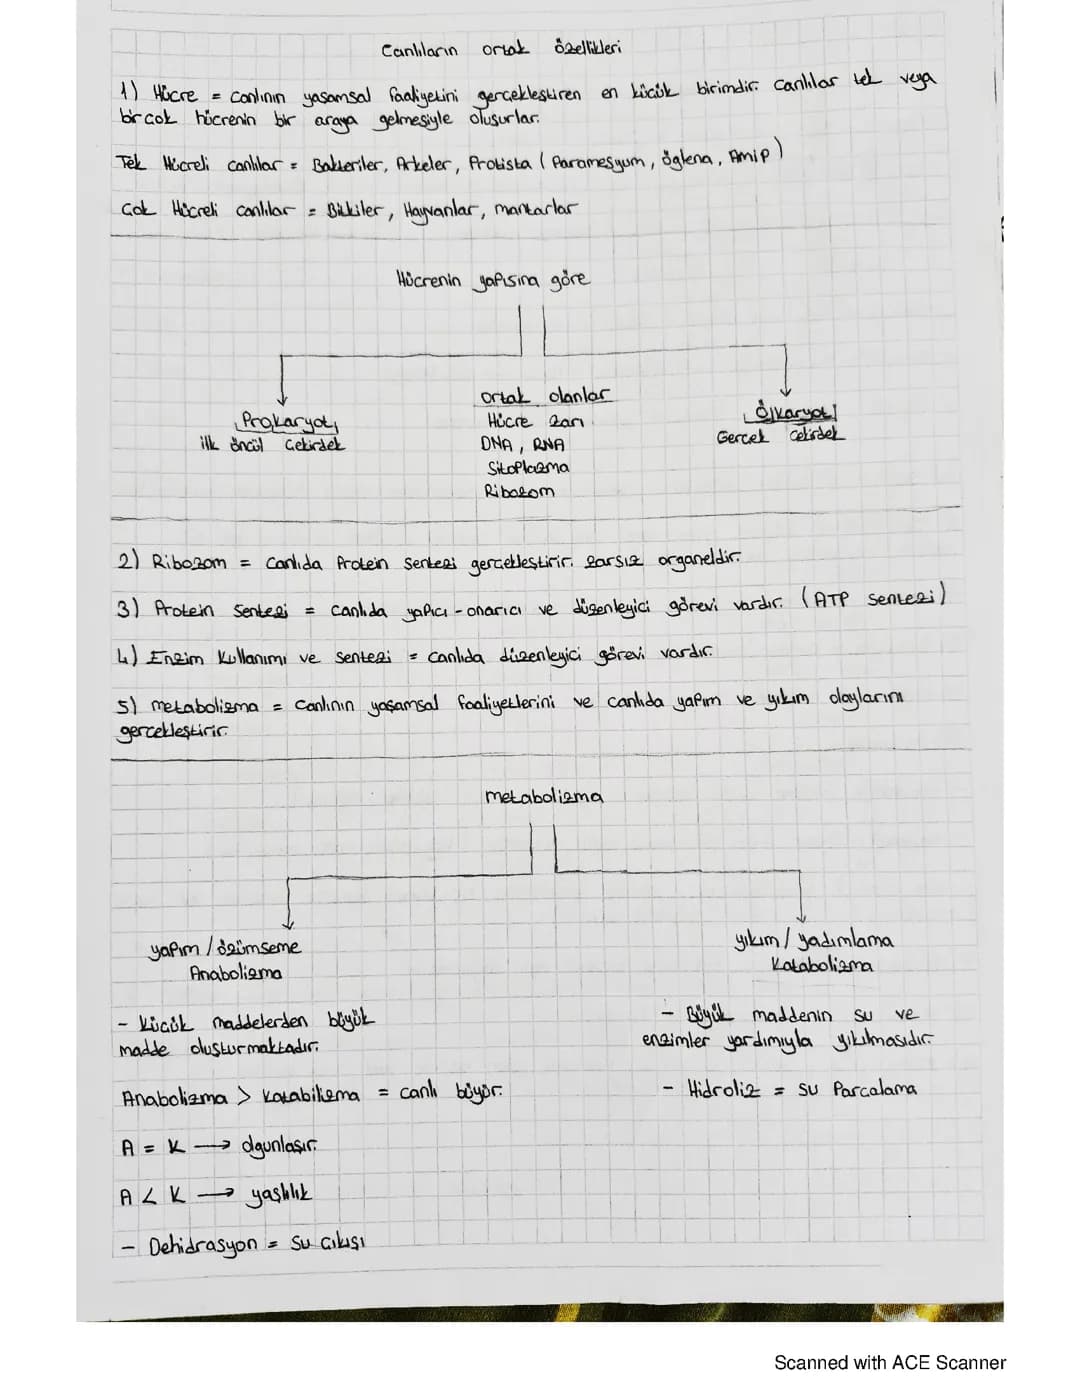 Canlıların ortak özellikleri
1) Hücre = canlının yaşamsal faaliyetini gerçekleştiren en küçük birimdir. Canlılar tek veya
birçok hücrenin bir araya gelmesiyle oluşurlar.
Tek Hücreli canlılar = Bakteriler, Arkeler, Protista (Paramesyum, öglena, Amip)
Çok Hücreli canlılar = Bitkiler, Hayvanlar, mantarlar
Hücrenin yapısına göre
ortak olanlar
Prokaryot
Hücre zarı
Ökaryot
ilk öncül Çekirdek
DNA, RNA
Gerçek çekirdek
Sitoplazma
Ribozom
2) Ribozom = canlıda Protein sentezi gerçekleştirir. zarsız organeldir.
3) Protein sentezi = canlıda yapıcı - onarıcı ve düzenleyici görevi vardır. (ATP sentezi)
4) Enzim Kullanımı ve sentezi = canlıda düzenleyici görevi vardır.
5) metabolizma = canlının yaşamsal faaliyetlerini ve canlıda yapım ve yıkım olaylarını
gerçekleştirir.
metabolizma
yapım / özümseme
Anabolizma
yıkım / yadımlama
Katabolizma
- küçük maddelerden büyük
madde oluşturmaktadır.
- Büyük maddenin su ve
enzimler yardımıyla yıkılmasıdır.
Anabolizma > katabilizma = canlı büyür.
- Hidroliz = su Parçalama
A = K → olgunlaşır.
A < K → yaşlılık
- Dehidrasyon = su çıkışı
Scanned with ACE Scanner